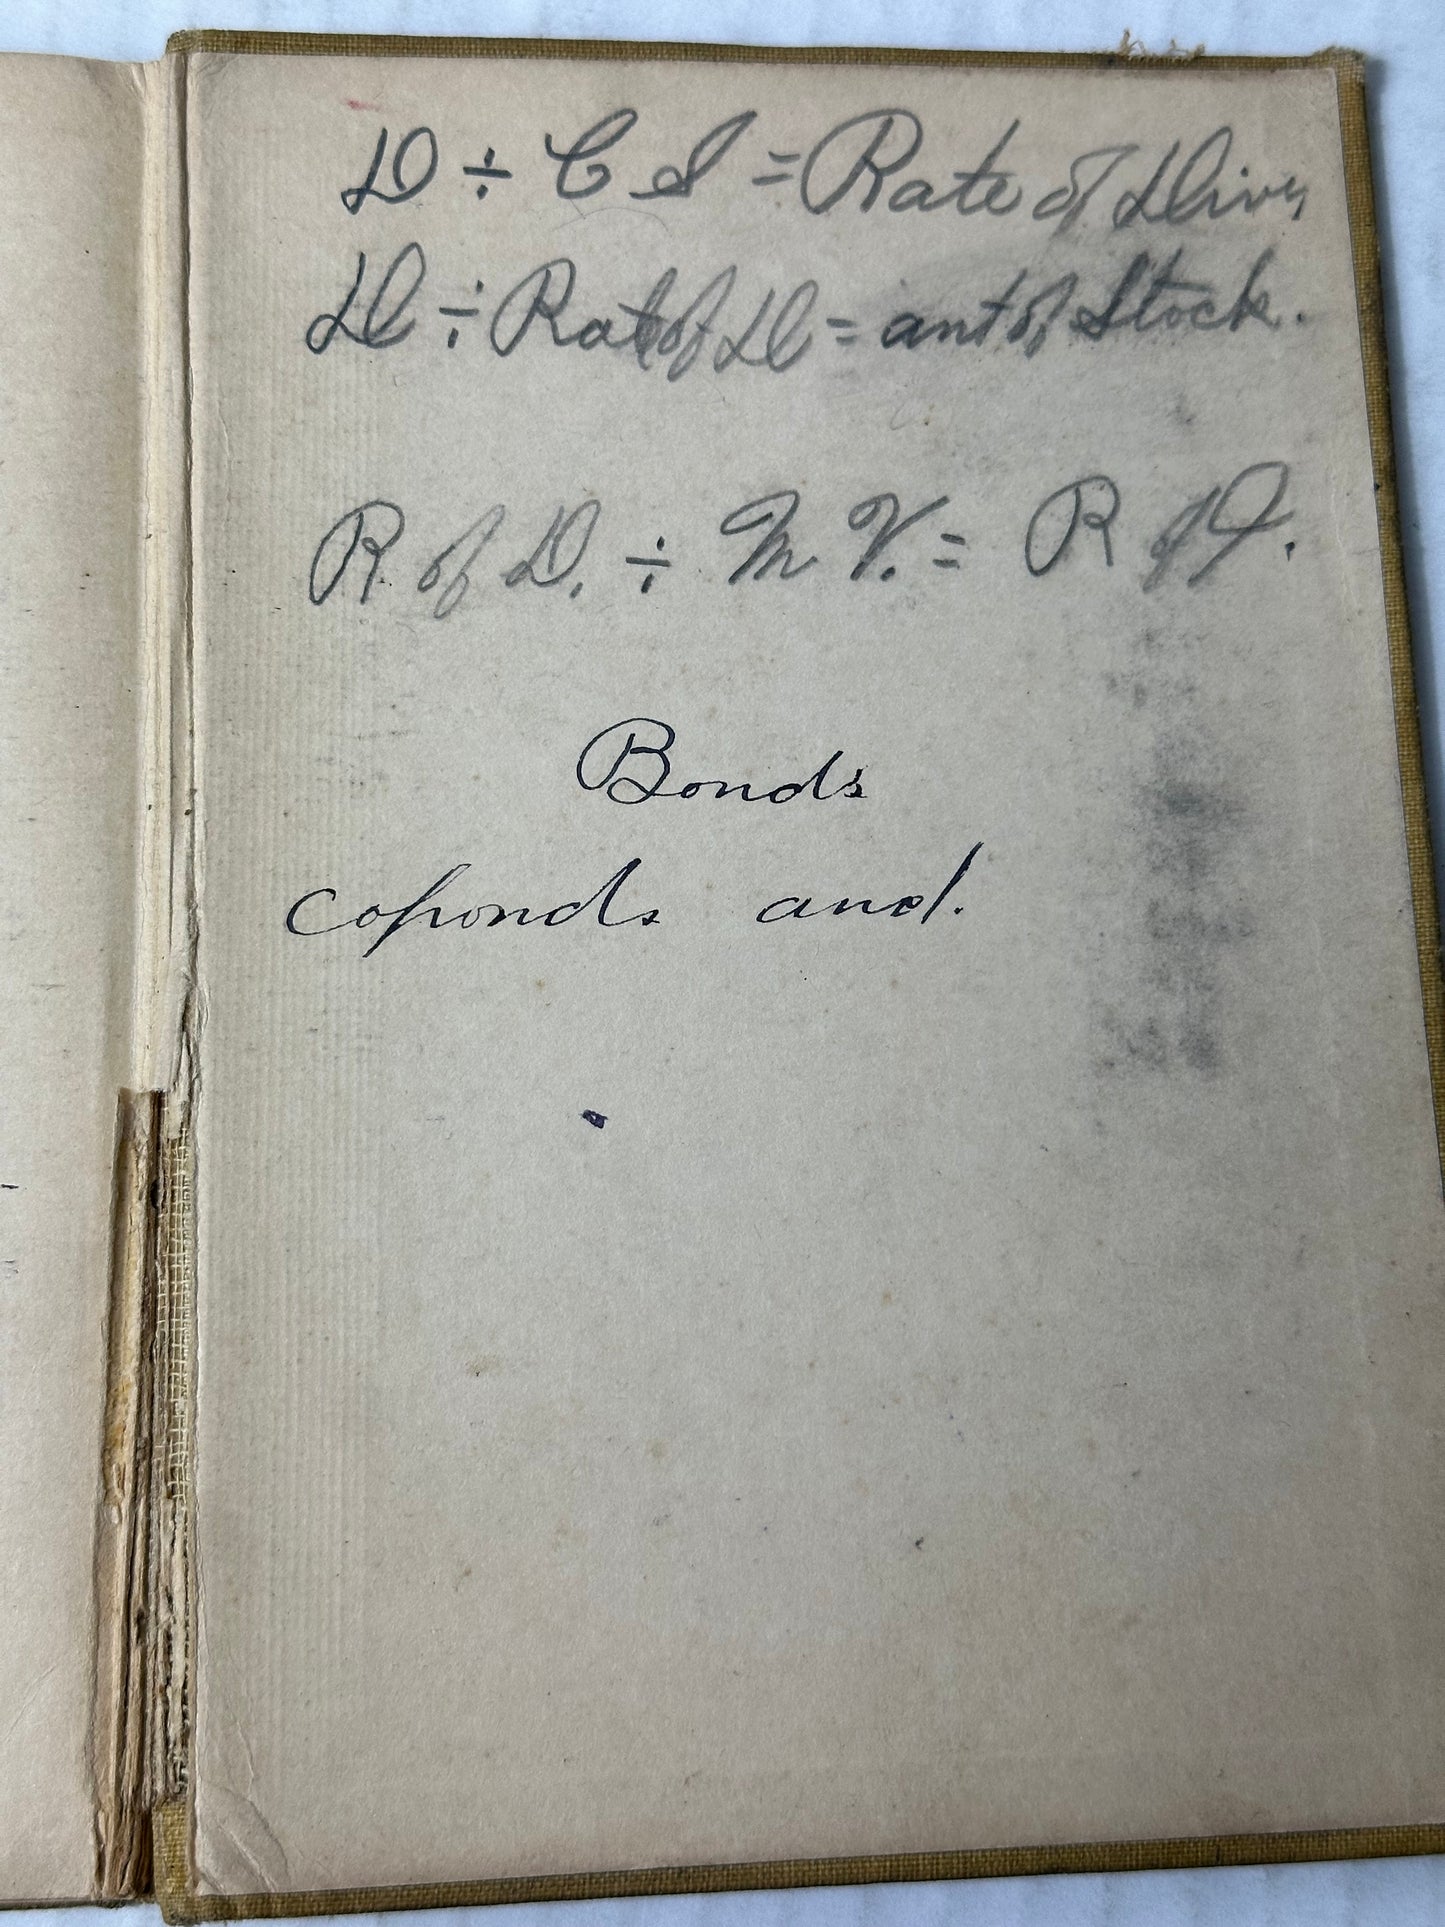 D ÷ C S = Rate of Div,
D ÷ Rate of D = amt of Stock.
R of D. ÷ M V. = R of I.
Bonds
coponds and.